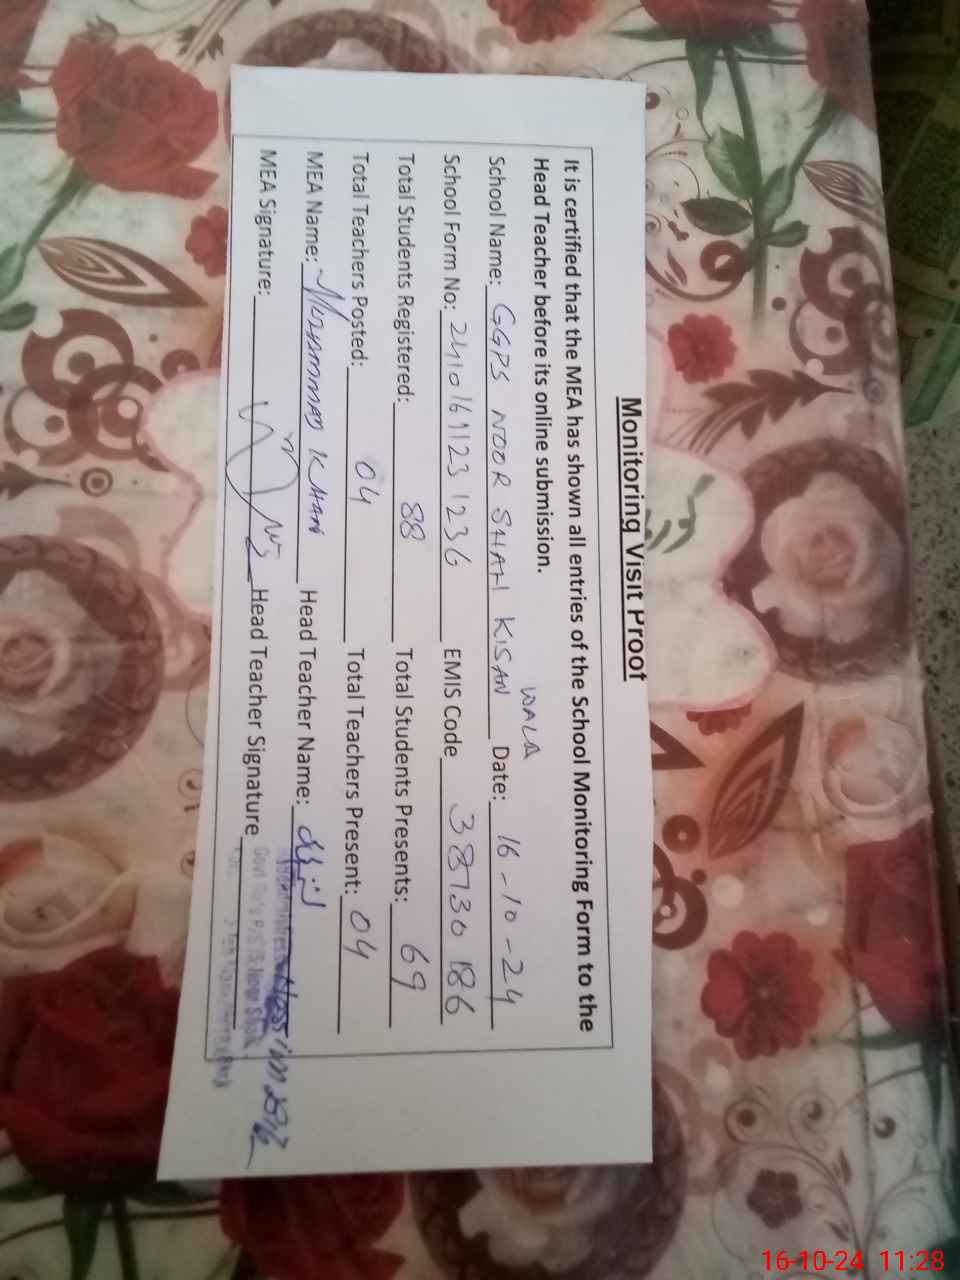 Monitoring Visit Proof
It is certified that the MEA has shown all entries of the School Monitoring Form to the
Head Teacher before its online submission.
WALA
School Name: GGPS NOOR SHAH KISAN Date: 16-10-24
School Form No: 2410161123 1236 EMIS Code 38730186
Total Students Registered: 88 Total Students Presents: 69
Total Teachers Posted: 04 Total Teachers Present: 04
MEA Name: Muhammad Khan Head Teacher Name:
MEA Signature: Head Teacher Signature
Govt Girls P/S
16-10-24 11:28